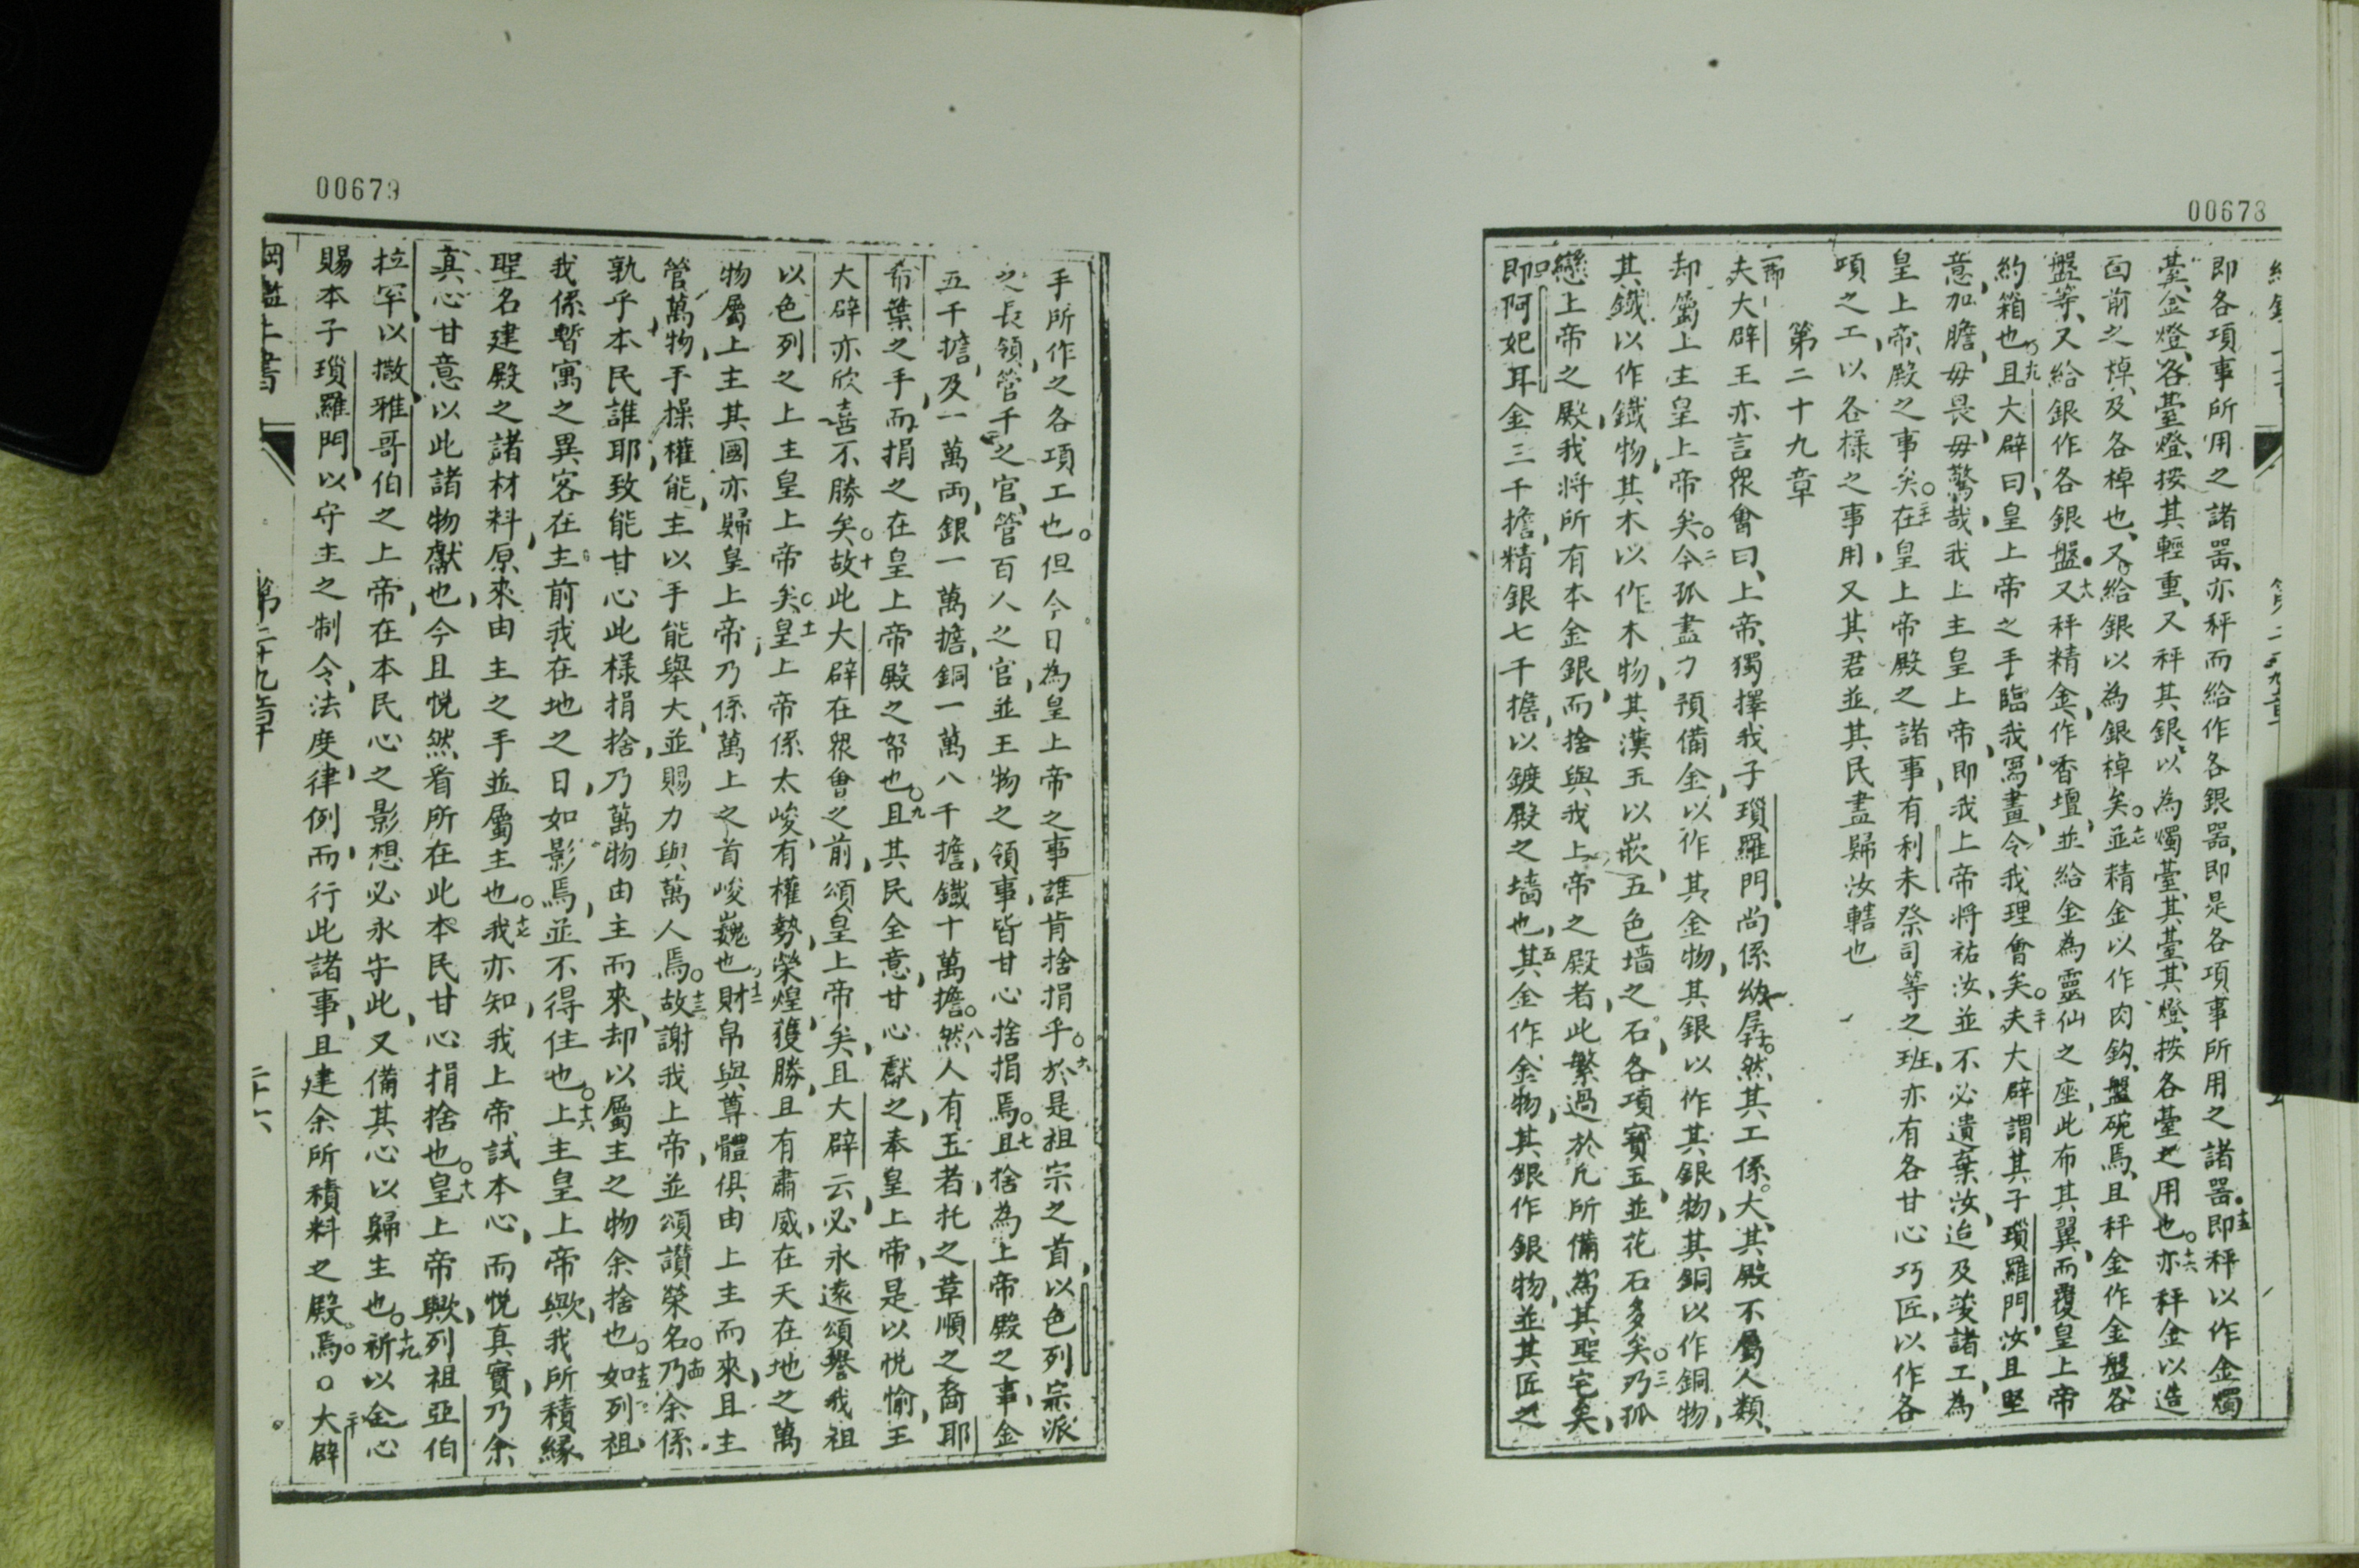 00678
即各項事所用之諸器、亦秤而給作各銀器、即是各項事所用之諸器。十五即秤以作金燭
臺、金燈、各臺燈、按其輕重、又秤其銀、以為燭臺、其臺、其燈、按各臺之用也。十六亦秤金以造
面前之棹、及各棹也、又給銀以為銀棹矣。十七並精金以作肉鈎、盤碗焉、且秤金作金盤、各
盤等、又給銀作各銀盤。十八又秤精金、作香壇、並給金為靈仙之座、此布其翼、而覆皇上帝
約箱也。十九且大辟曰、皇上帝之手臨我、寫畫、令我理會矣。二十夫大辟謂其子瑣羅門、汝且堅
意加膽、毋畏、毋驚哉、我上主皇上帝、即我上帝將祐汝、並不必遺棄汝、迨及竣諸工、為
皇上帝殿之事矣。在皇上帝殿之諸事、有利未祭司等之班、亦有各甘心巧匠、以作各
項之工、以各樣之事用、又其君並其民盡歸汝轄也
第二十九章
一節夫大辟王亦言眾會曰、上帝獨擇我子瑣羅門、尚係幼孱。然其工係大、其殿不屬人類、
却屬上主皇上帝矣。二今孤盡力預備金、以作其金物、其銀以作其銀物、其銅以作銅物、
其鐵以作鐵物、其木以作木物、其漢玉以嵌、五色墻之石、各項寶玉、並花石多矣。三乃孤
戀上帝之殿、我將所有本金銀、而捨與我上帝之殿者、此繁過於凡所備為其聖宅矣、
四即阿妃耳金三千擔、精銀七千擔、以鍍殿之墻也、五其金作金物、其銀作銀物、並其匠之
00679
手所作之各項工也。但今日為皇上帝之事、誰肯捨捐乎。六於是祖宗之首、以色列宗派
之長領、管千之官、管百人之官、並王物之領事、皆甘心捨捐焉。七且捨為上帝殿之事、金
五千擔、及一萬両、銀一萬擔、銅一萬八千擔、鐵十萬擔。八然人有玉者、托之革順之裔耶
希葉之手、而捐之在皇上帝殿之帑也。九且其民全意、甘心獻之奉皇上帝、是以悅愉、王
大辟亦欣喜不勝矣。十故此大辟在眾會之前、頌皇上帝矣、且大辟云、必永遠頌譽我祖
以色列之上主皇上帝矣。十一皇上帝係太峻、有權勢、榮煌、獲勝、且有肅威、在天在地之萬
物屬上主、其國亦歸皇上帝、乃係萬上之首峻巍也。十二財帛與尊體俱由上主而來、且主
管萬物、手操權能、主以手能舉大、並賜力與萬人焉。十三故謝我上帝、並頌讚榮名。十四乃余係
孰乎、本民誰耶、致能甘心此樣捐捨、乃萬物由主而來、却以屬主之物余捨也。十五如列祖、
我係暫寓之異客在主前、我在地之日如影焉、並不得住也。十六上主皇上帝歟、我所積緣
聖名建殿之諸材料、原來由主之手、並屬主也。十七我亦知、我上帝試本心、而悅真實、乃余
真心甘意以此諸物獻也、今且悅然看所在此本民甘心捐捨也。十八皇上帝歟、列祖亞伯
拉罕、以撒、雅哥伯之上帝、在本民心之影想必永守此、又備其心以歸主也。十九祈以全心
賜本子瑣羅門、以守主之制令、法度、律例、而行此諸事、且建余所積料之殿焉。○二十大辟
第二十九章
二十六